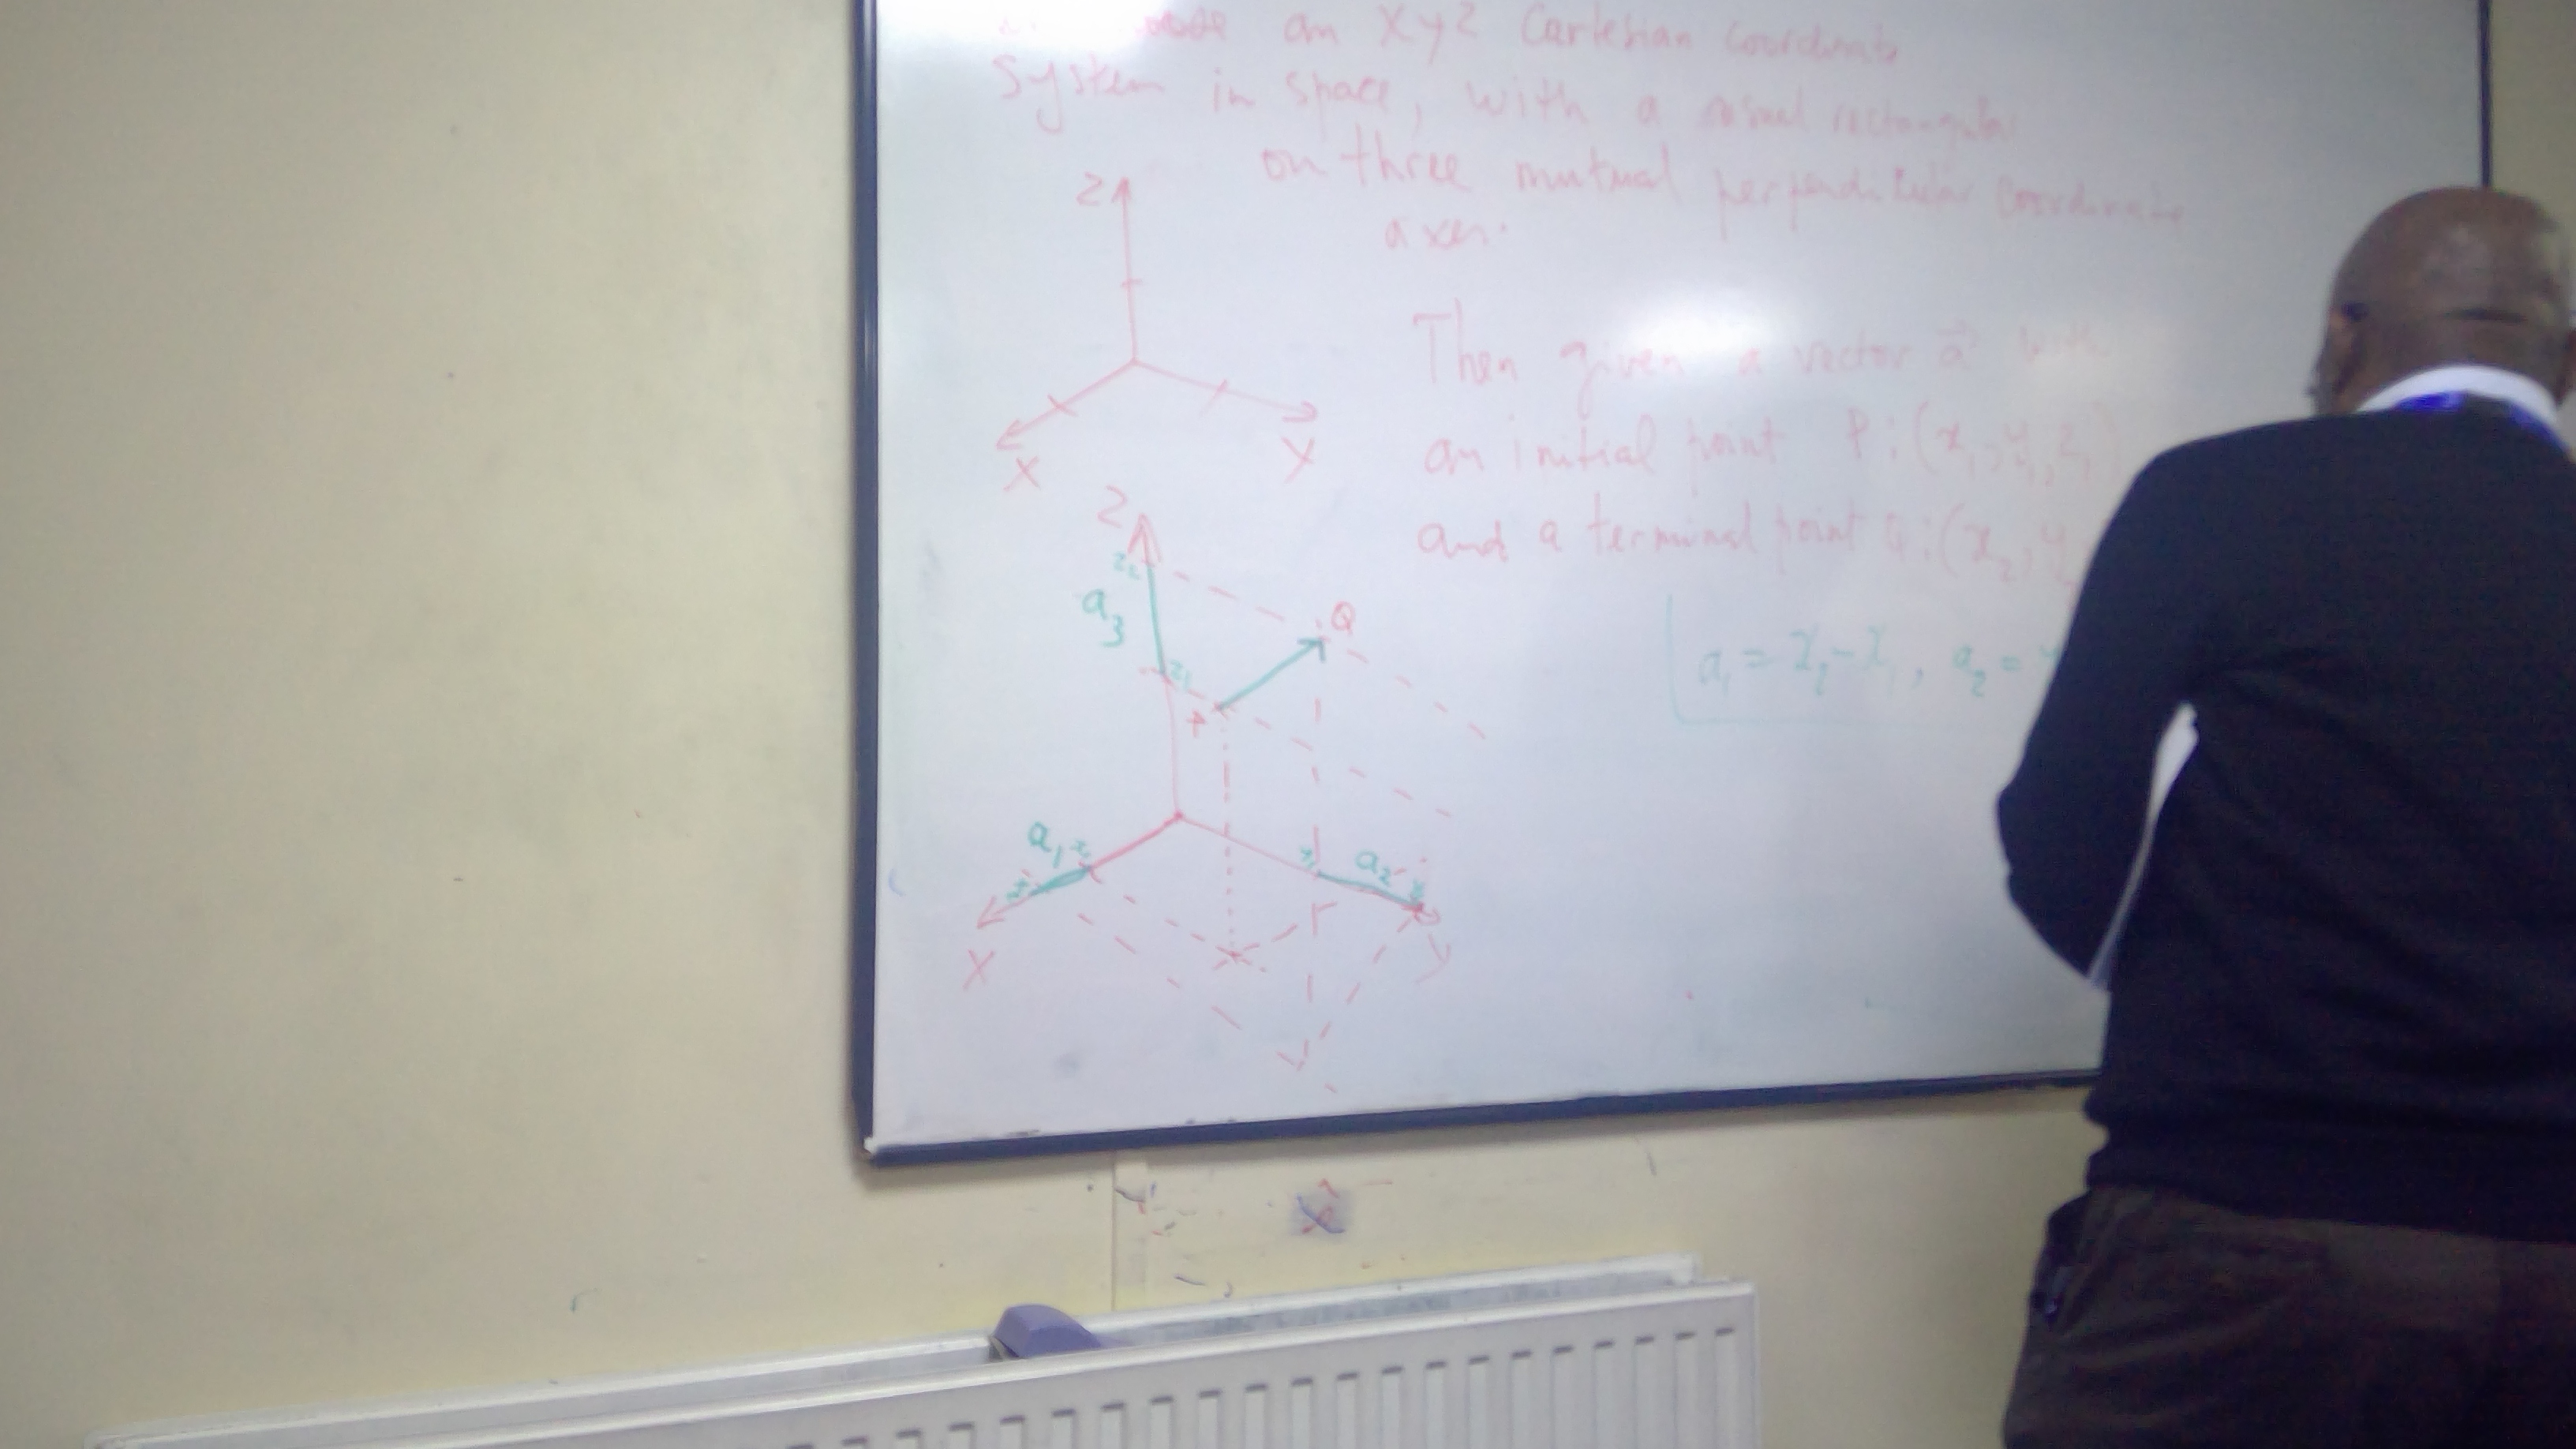 an xyz Cartesian Coordinate
System in space, with a usual rectangular
on three mutual perpendicular coordinate
axes.
Z
X
Y
Then given a vector a⃗
an initial point P:(x₁, y₁, z₁)
and a terminal point Q:(x₂, y₂
Z
z₂
a₃
z₁
Q
P
a₁ = x₂ - x₁, a₂ =
a₁ x₁
x₂
y₁ a₂ y₂
X
Y